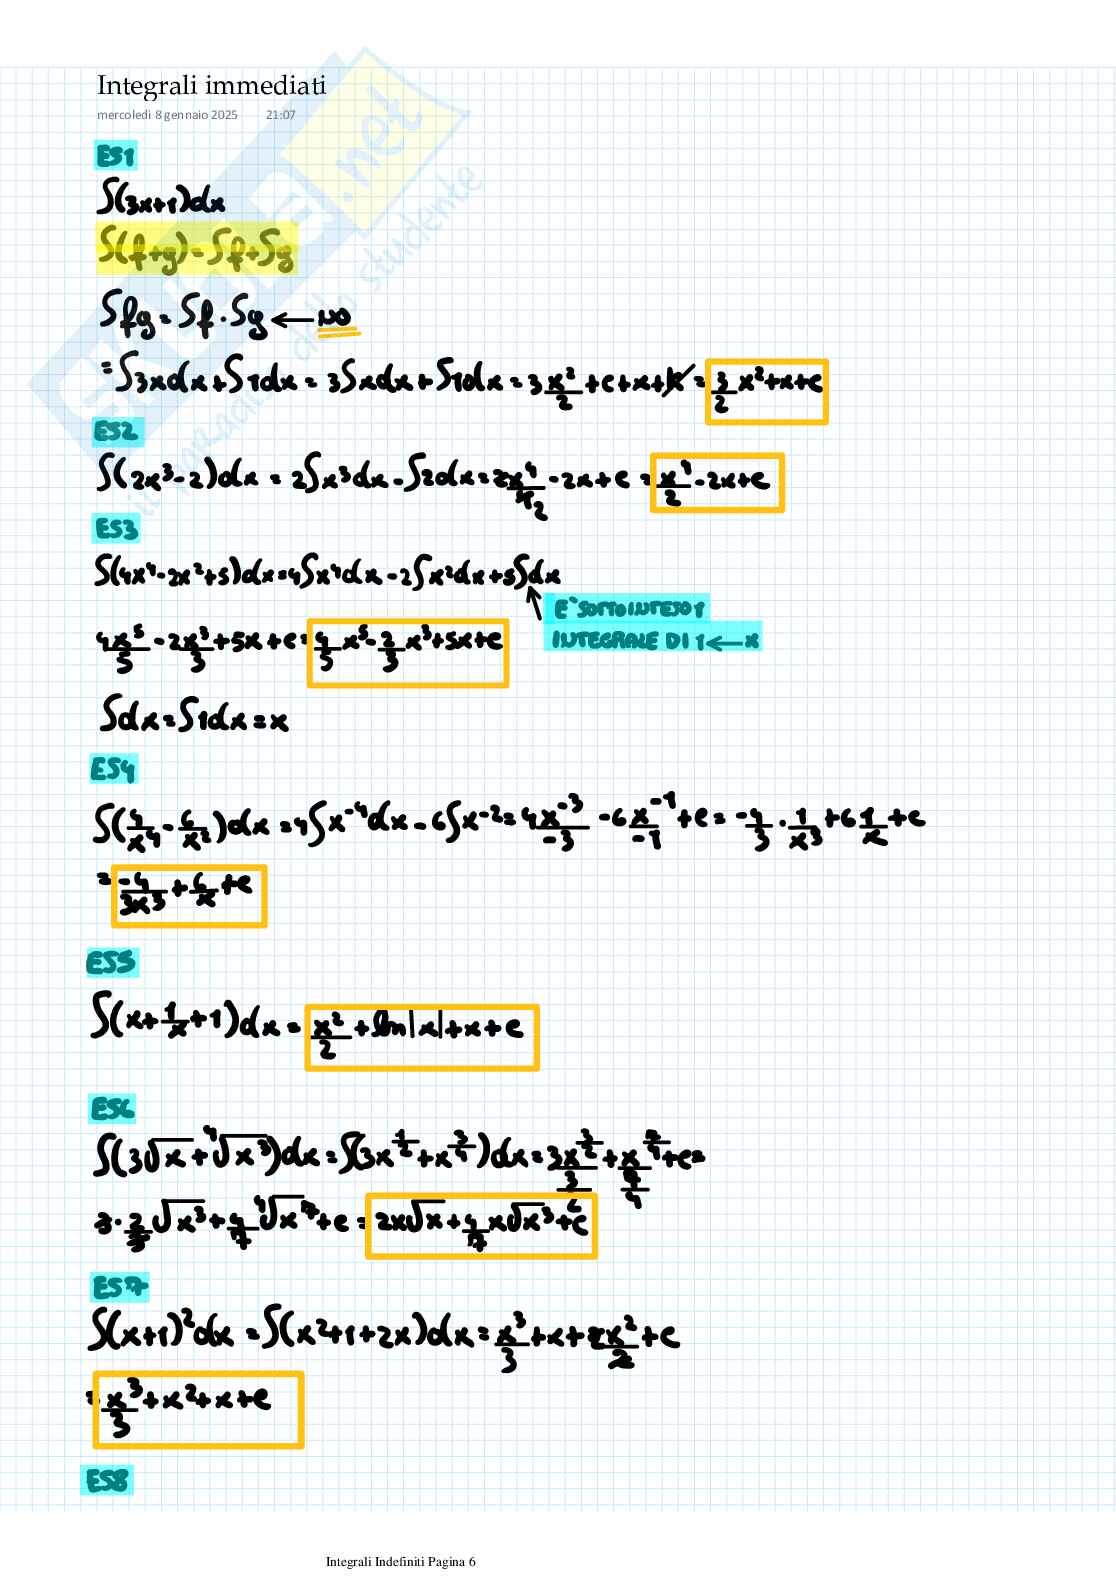 Integrali immediati
mercoledì 8 gennaio 2025 21:07
ES1
∫(3x+1)dx
∫(f+g)=∫f+∫g
∫fg=∫f·∫g ← NO
=∫3xdx+∫1dx=3∫xdx+∫1dx=3x²/2+c+x+k=3/2x²+x+c
ES2
∫(2x³-2)dx=2∫x³dx-∫2dx=2x⁴/4 2-2x+c=x⁴/2-2x+c
ES3
∫(4x⁴-2x²+5)dx=4∫x⁴dx-2∫x²dx+5∫dx
E' SOTTOINTESO 1
INTEGRALE DI 1 ← x
4x⁵/5-2x³/3+5x+c=4/5x⁵-2/3x³+5x+c
∫dx=∫1dx=x
ES4
∫(4/x⁴-6/x²)dx=4∫x⁻⁴dx-6∫x⁻²=4x⁻³/-3-6x⁻¹/-1+c=-4/3·1/x³+6 1/x+c
=-4/3x³+6/x+c
ES5
∫(x+1/x+1)dx=x²/2+ln|x|+x+c
ES6
∫(3√x+⁴√x³)dx=∫(3x^1/2+x^3/4)dx=3x^3/2/3/2+x^7/4/7/4+c=
3·2/3√x³+4/7⁴√x⁷+c=2x√x+4/7x⁴√x³+c
ES7
∫(x+1)²dx=∫(x²+1+2x)dx=x³/3+x+2x²/2+c
=x³/3+x²+x+c
ES8
Integrali Indefiniti Pagina 6